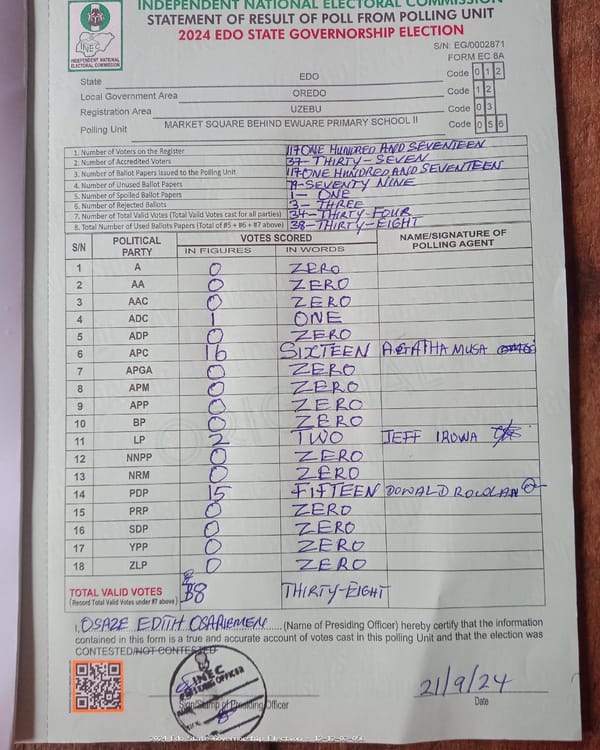 INDEPENDENT NATIONAL ELECTORAL COMMISSION
STATEMENT OF RESULT OF POLL FROM POLLING UNIT
2024 EDO STATE GOVERNORSHIP ELECTION
INEC
INDEPENDENT NATIONAL ELECTORAL COMMISSION
S/N: EG/0002871
FORM EC 8A
State EDO Code 0 1 2
Local Government Area OREDO Code 1 2
Registration Area UZEBU Code 0 3
Polling Unit MARKET SQUARE BEHIND EWUARE PRIMARY SCHOOL II Code 0 5 6
1. Number of Voters on the Register 117 ONE HUNDRED AND SEVENTEEN
2. Number of Accredited Voters 37-THIRTY-SEVEN
3. Number of Ballot Papers Issued to the Polling Unit 117 ONE HUNDRED AND SEVENTEEN
4. Number of Unused Ballot Papers 79-SEVENTY NINE
5. Number of Spoiled Ballot Papers 1- ONE
6. Number of Rejected Ballots 3- THREE
7. Number of Total Valid Votes (Total Valid Votes cast for all parties) 34-THIRTY-FOUR
8. Total Number of Used Ballots Papers (Total of #5 + #6 + #7 above) 38-THIRTY-EIGHT
S/N POLITICAL PARTY VOTES SCORED NAME/SIGNATURE OF POLLING AGENT
IN FIGURES IN WORDS
1 A 0 ZERO
2 AA 0 ZERO
3 AAC 0 ZERO
4 ADC 1 ONE
5 ADP 0 ZERO
6 APC 16 SIXTEEN AGATHA MUSA
7 APGA 0 ZERO
8 APM 0 ZERO
9 APP 0 ZERO
10 BP 0 ZERO
11 LP 2 TWO JEFF IROWA
12 NNPP 0 ZERO
13 NRM 0 ZERO
14 PDP 15 FIFTEEN
15 PRP 0 ZERO
16 SDP 0 ZERO
17 YPP 0 ZERO
18 ZLP 0 ZERO
TOTAL VALID VOTES 38 THIRTY-EIGHT
(Record Total Valid Votes under #7 above)
I, OSAZE EDITH OSARIEMEN (Name of Presiding Officer) hereby certify that the information
contained in this form is a true and accurate account of votes cast in this polling Unit and that the election was
CONTESTED/NOT CONTESTED
INEC
Sign/Stamp of Presiding Officer
21/9/24
Date